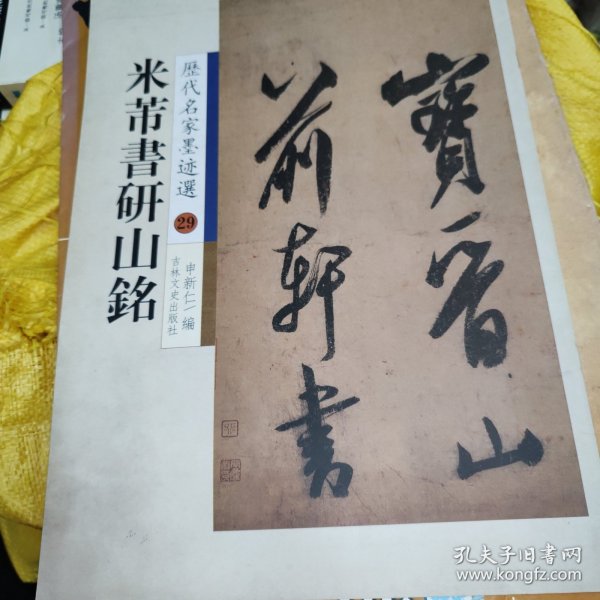 歷代名家墨迹選
29
米芾書研山銘
申新仁編
吉林文史出版社
寶晉山
前軒書
孔夫子旧书网
www.kongfz.com